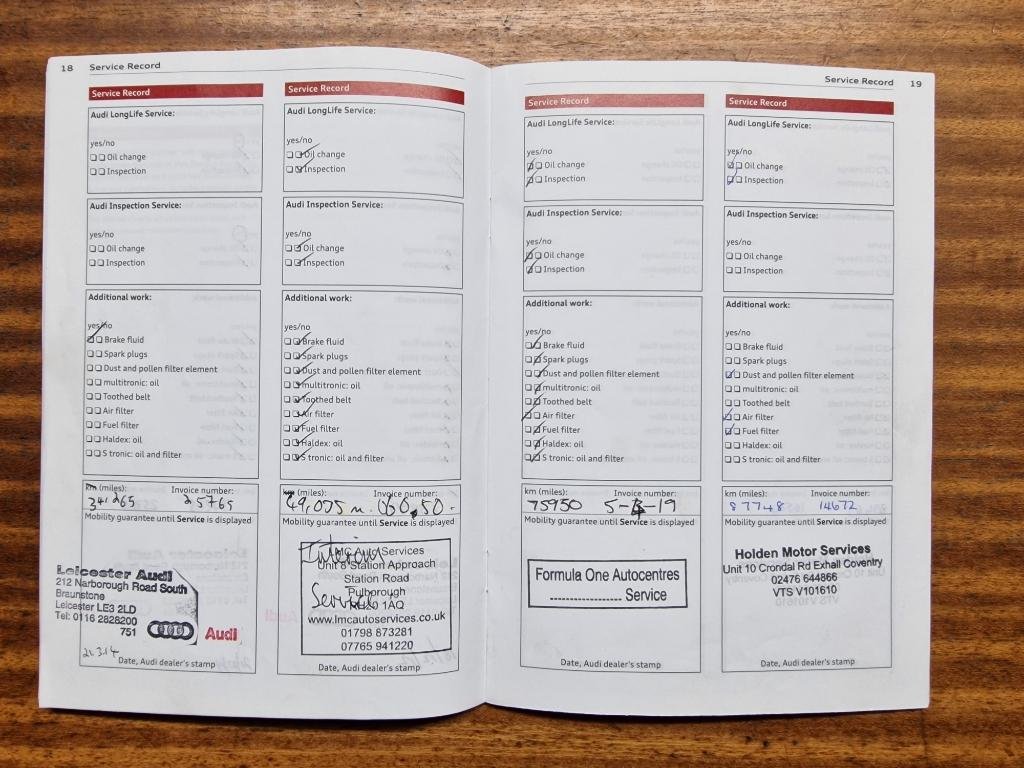 18 Service Record
Service Record
Audi LongLife Service:
yes/no
Oil change
Inspection
Audi Inspection Service:
yes/no
Oil change
Inspection
Additional work:
yes/no
Brake fluid
Spark plugs
Dust and pollen filter element
multitronic: oil
Toothed belt
Air filter
Fuel filter
Haldex: oil
S tronic: oil and filter
km (miles): Invoice number:
34,265 25765
Mobility guarantee until Service is displayed
Leicester Audi
212 Narborough Road South
Braunstone
Leicester LE3 2LD
Tel: 0116 2828200
751
Audi
21.3.14
Date, Audi dealer's stamp
Service Record
Audi LongLife Service:
yes/no
Oil change
Inspection
Audi Inspection Service:
yes/no
Oil change
Inspection
Additional work:
yes/no
Brake fluid
Spark plugs
Dust and pollen filter element
multitronic: oil
Toothed belt
Air filter
Fuel filter
Haldex: oil
S tronic: oil and filter
km (miles): Invoice number:
49,075 m.
Mobility guarantee until Service is displayed
Interim
Service
LMC Auto Services
Unit 8 Station Approach
Station Road
Pulborough
RH20 1AQ
www.lmcautoservices.co.uk
01798 873281
07765 941220
Date, Audi dealer's stamp
Service Record 19
Service Record
Audi LongLife Service:
yes/no
Oil change
Inspection
Audi Inspection Service:
yes/no
Oil change
Inspection
Additional work:
yes/no
Brake fluid
Spark plugs
Dust and pollen filter element
multitronic: oil
Toothed belt
Air filter
Fuel filter
Haldex: oil
S tronic: oil and filter
km (miles): Invoice number:
75950
Mobility guarantee until Service is displayed
Formula One Autocentres
Service
Date, Audi dealer's stamp
Service Record
Audi LongLife Service:
yes/no
Oil change
Inspection
Audi Inspection Service:
yes/no
Oil change
Inspection
Additional work:
yes/no
Brake fluid
Spark plugs
Dust and pollen filter element
multitronic: oil
Toothed belt
Air filter
Fuel filter
Haldex: oil
S tronic: oil and filter
km (miles): Invoice number:
87748 14672
Mobility guarantee until Service is displayed
Holden Motor Services
Unit 10 Crondal Rd Exhall Coventry
02476 644866
VTS V101610
Date, Audi dealer's stamp